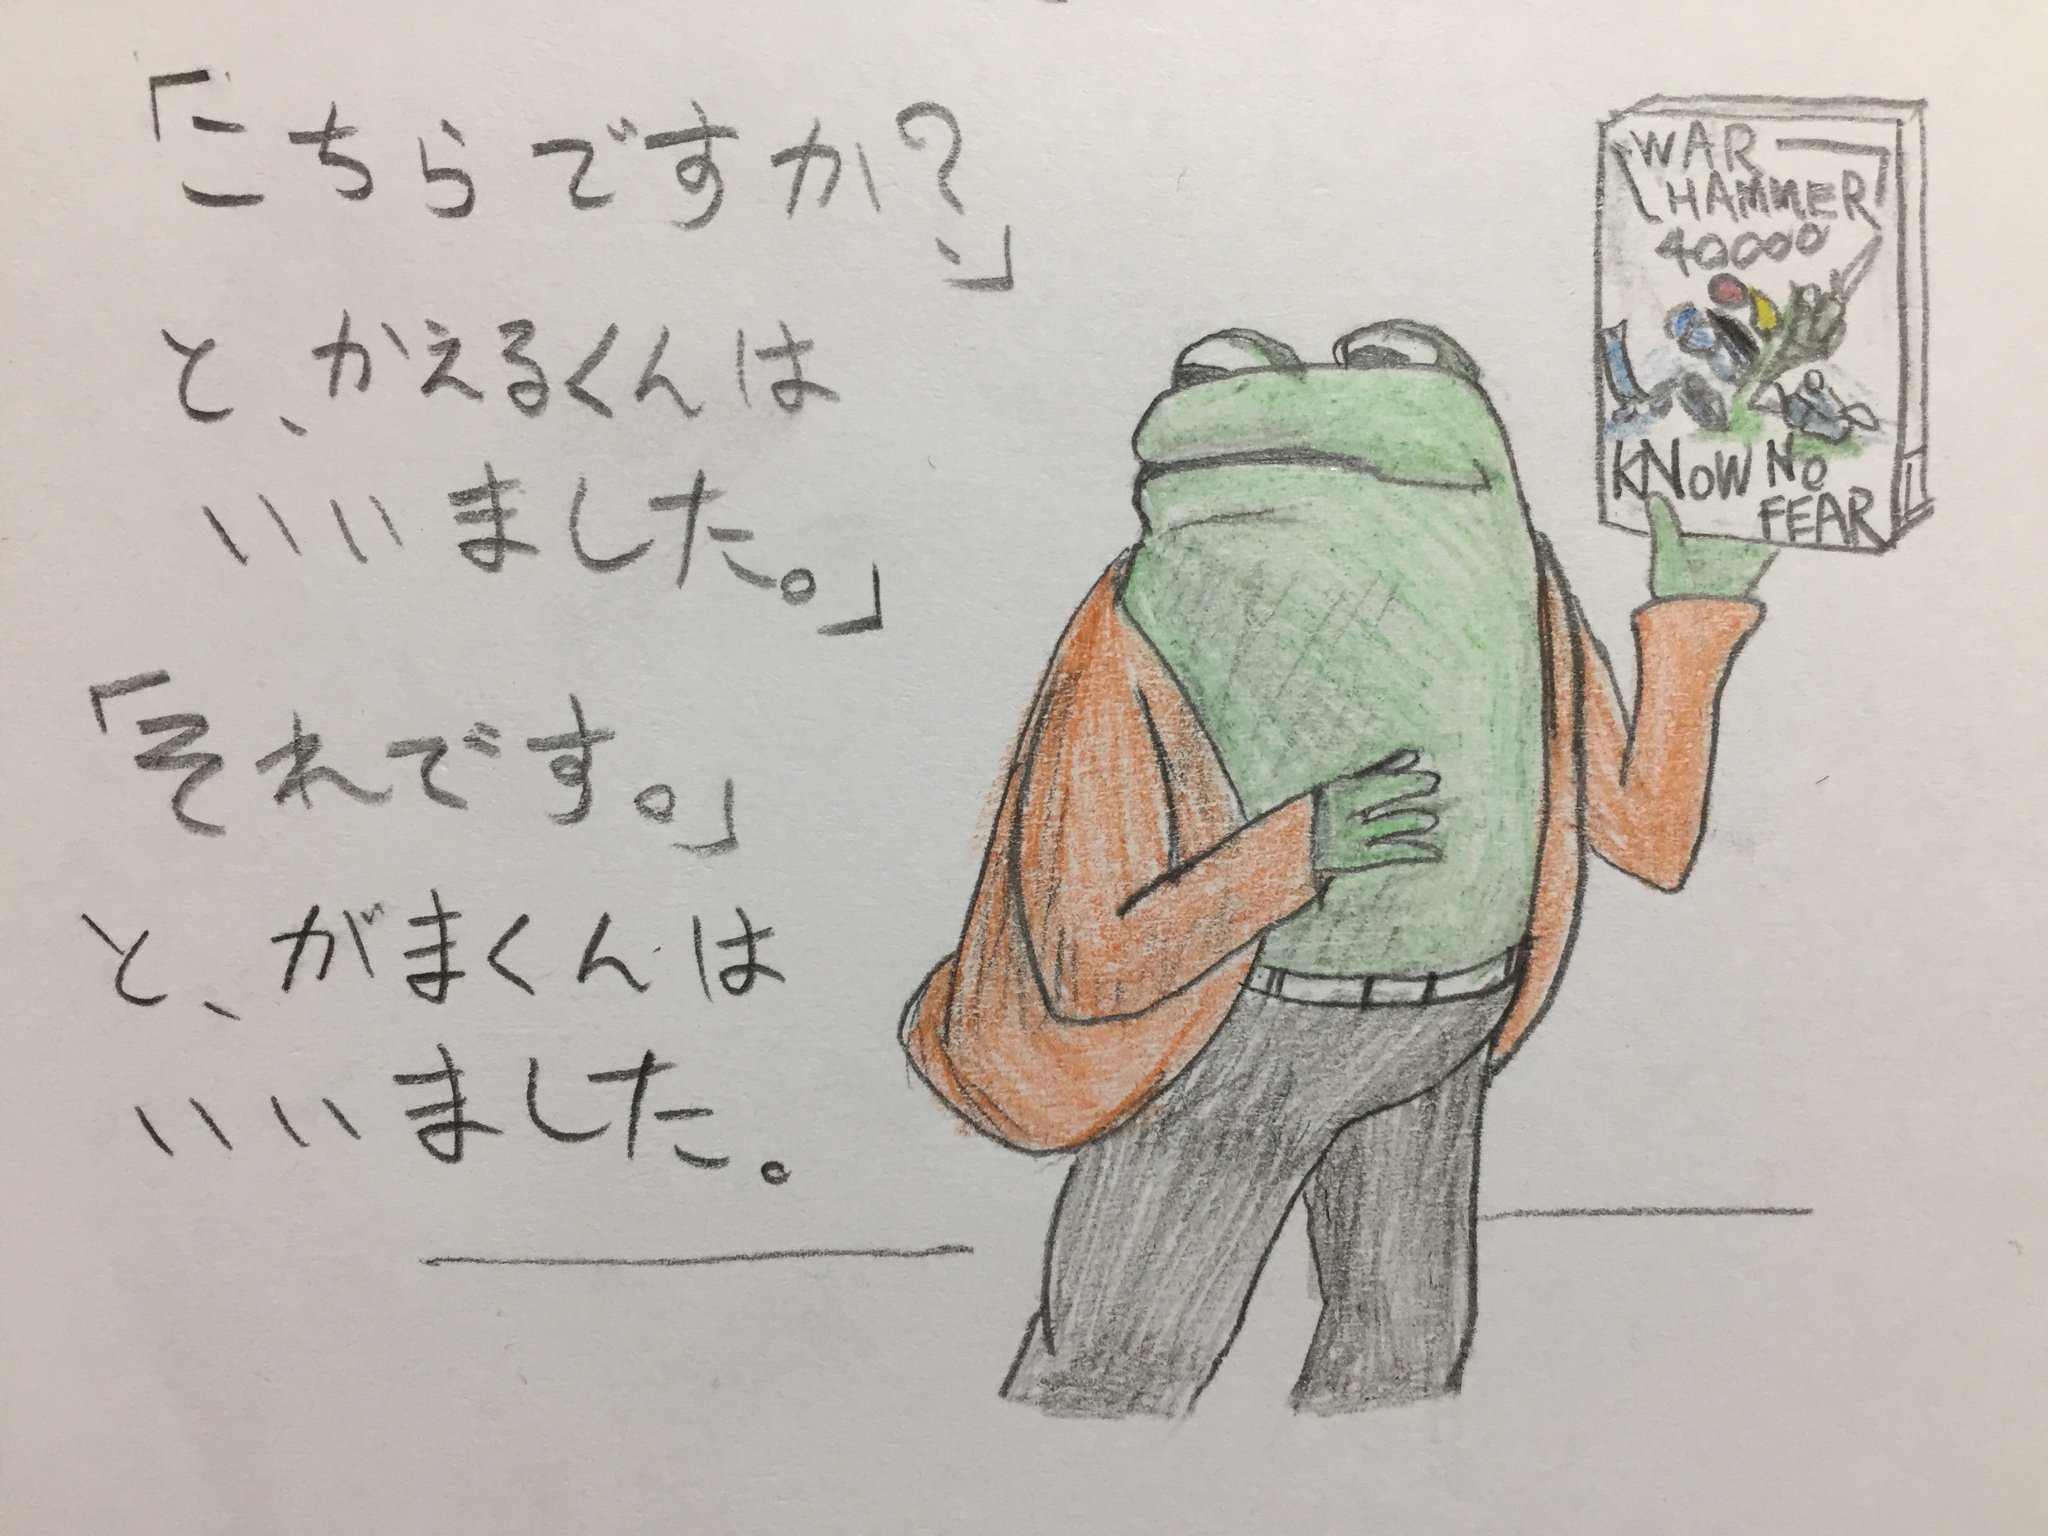 「こちらですか?」
と、かえるくんは
いいました。」
「それです。」
と、がまくんは
いいました。
WAR
HAMMER
40000
KNOW NO
FEAR